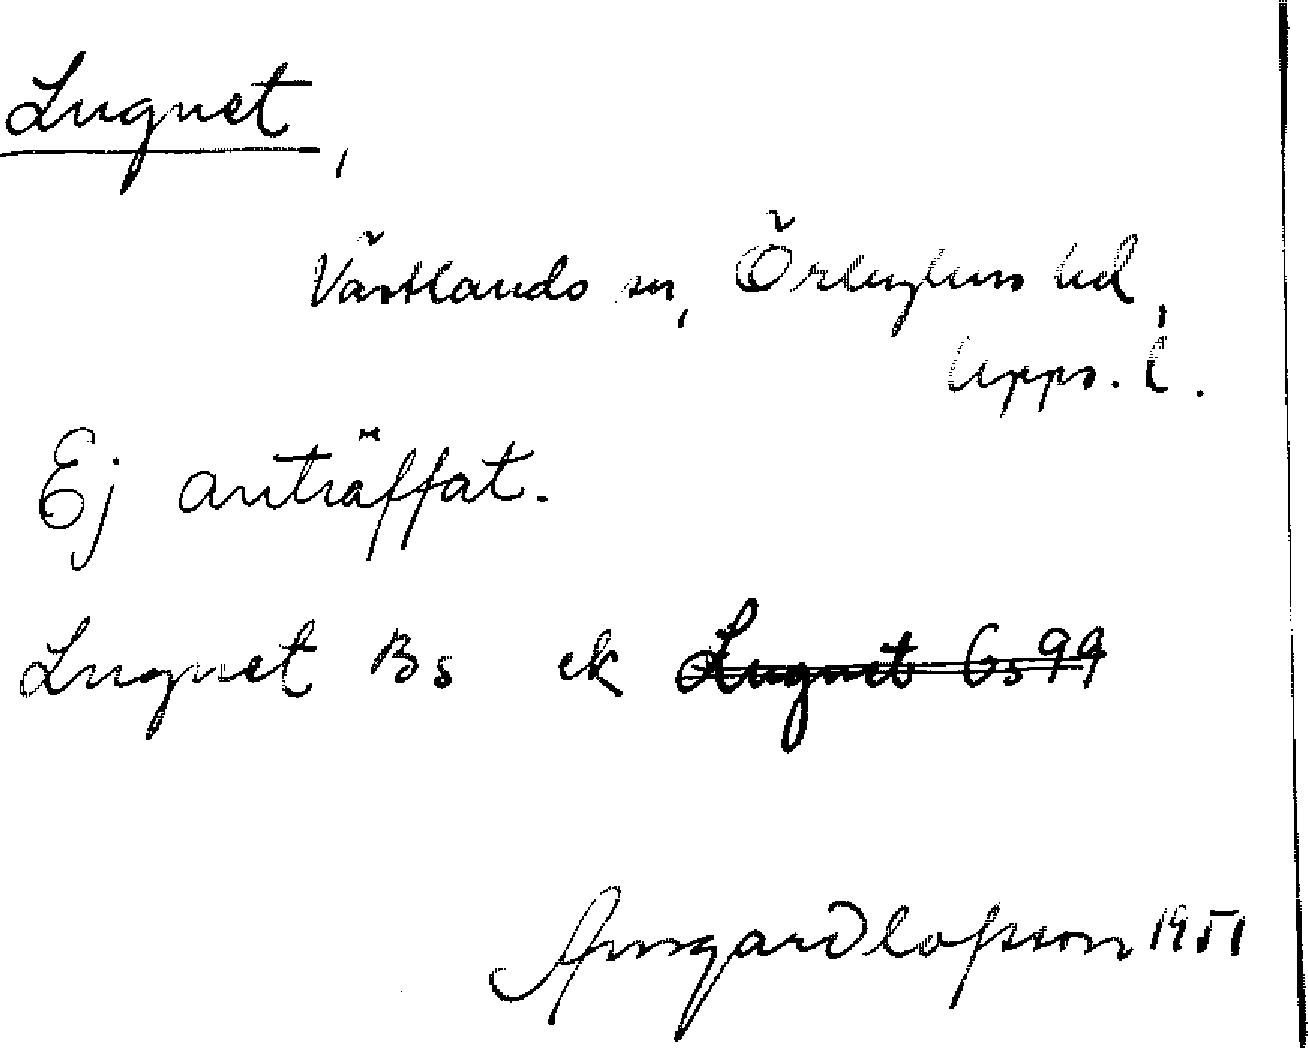 Lugnet,
Västlands sn, Örbyhus hd,
Upps. l.
Ej anträffat.
Lugnet Bs ek Lugnet Gs 99
Olofsson 1951